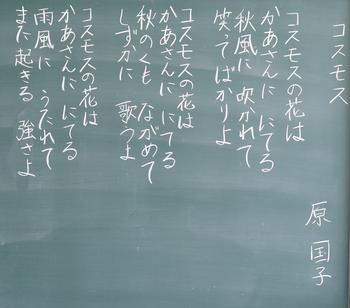 コスモス
原 国子
コスモスの花は
かあさんに にてる
秋風に 吹かれて
笑ってばかりよ
コスモスの花は
かあさんに にてる
秋のくも ながめて
しずかに 歌うよ
コスモスの花は
かあさんに にてる
雨風に うたれて
また起きる 強さよ